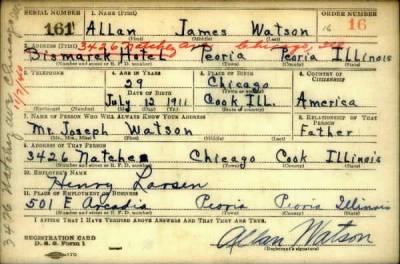 SERIAL NUMBER 1. NAME (Print) ORDER NUMBER
161 Allan James Watson 16 16
(First) (Middle) (Last)
2. ADDRESS (Print) 3426 Natchez Av Chicago, Ill
Bismarck Hotel Peoria Peoria Illinois
(Number and street or R. F. D. number) (Town) (County) (State)
3. TELEPHONE 4. AGE IN YEARS 5. PLACE OF BIRTH 6. COUNTRY OF CITIZENSHIP
29 Chicago
DATE OF BIRTH (Town or county)
July 12 1911 Cook Ill. America
(Exchange) (No.) (Mo.) (Day) (Yr.) (State or country)
7. NAME OF PERSON WHO WILL ALWAYS KNOW YOUR ADDRESS 8. RELATIONSHIP OF THAT PERSON
Mr. Joseph Watson Father
(Mr., Mrs., Miss) (First) (Middle) (Last)
9. ADDRESS OF THAT PERSON
3426 Natchez Chicago Cook Illinois
(Number and street or R. F. D. number) (Town) (County) (State)
10. EMPLOYER'S NAME
Henry Larsen
11. PLACE OF EMPLOYMENT OR BUSINESS
501 E Arcadia Peoria Peoria Illinois
(Number and street or R. F. D. number) (Town) (County) (State)
I AFFIRM THAT I HAVE VERIFIED ABOVE ANSWERS AND THAT THEY ARE TRUE.
REGISTRATION CARD
D. S. S. Form 1
Allan Watson
(Registrant's signature)
3426 Natchez Av Chicago